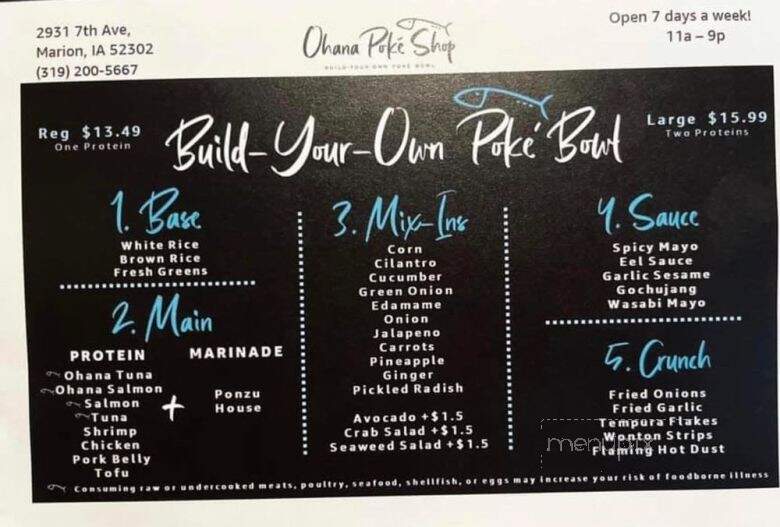 2931 7th Ave,
Marion, IA 52302
(319) 200-5667
Ohana Poké Shop
BUILD-YOUR-OWN POKÉ BOWL
Open 7 days a week!
11a – 9p
Reg $13.49
One Protein
Build-Your-Own Poké Bowl
Large $15.99
Two Proteins
1. Base
White Rice
Brown Rice
Fresh Greens
2. Main
PROTEIN
Ohana Tuna
Ohana Salmon
Salmon
Tuna
Shrimp
Chicken
Pork Belly
Tofu
+
MARINADE
Ponzu
House
3. Mix-Ins
Corn
Cilantro
Cucumber
Green Onion
Edamame
Onion
Jalapeno
Carrots
Pineapple
Ginger
Pickled Radish
Avocado +$1.5
Crab Salad +$1.5
Seaweed Salad +$1.5
4. Sauce
Spicy Mayo
Eel Sauce
Garlic Sesame
Gochujang
Wasabi Mayo
5. Crunch
Fried Onions
Fried Garlic
Tempura Flakes
Wonton Strips
Flaming Hot Dust
menupix
Consuming raw or undercooked meats, poultry, seafood, shellfish, or eggs may increase your risk of foodborne illness